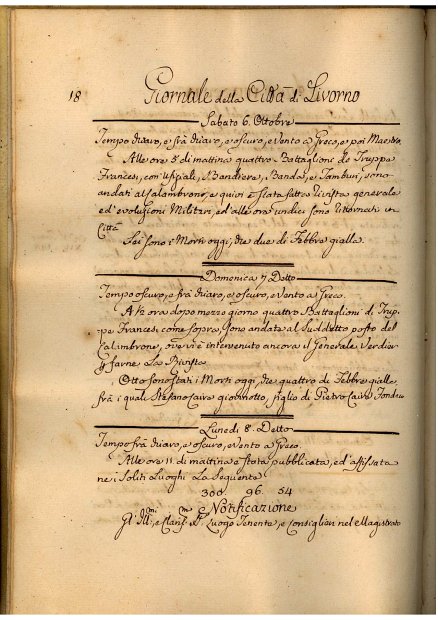 18 Giornale della Città di Livorno
Sabato 6. Ottobre
Tempo chiaro, e frà chiaro, e oscuro, e vento a Greco, e poi Maestro
Alle ore 5 di mattina quattro Battaglioni de Truppe
Francesi, con Ufiziali, Bandiere, Banda, e Tamburi, sono
andati al Calambrone, e quivi è stata fatta rivista generale
ed evoluzioni Militari, ed alle ore undici sono ritornati in
Città
Sei sono i Morti oggi, che due di Febbre gialla.
Domenica 7 Detto
Tempo oscuro, e frà chiaro, e oscuro, e vento a Greco.
A h ora dopo mezzo giorno quattro Battaglioni di Trup=
pe Francesi, come sopra, sono andate al Suddetto posto del
Calambrone, ove vi è intervenuto ancora il Generale Verdier
a farne La Rivista
Otto sono stati i Morti oggi, che quattro di Febbre gialla
frà i quali Stefano giovinotto, figlio di Pietro
Lunedì 8. Detto
Tempo frà chiaro, e oscuro, e vento a Greco.
Alle ore 11. di mattina è stata pubblicata, ed' affissata
ne i Soliti Luoghi La Seguente
300. 96. 54
Notificazione
Gl' Ill:mi, e Luogo Tenente, e Consiglieri nel Magistrato